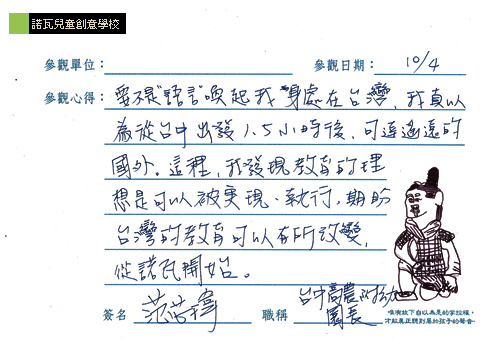 諾瓦兒童創意學校
參觀單位： 參觀日期： 10/4
參觀心得：要不是"語言"喚起我"身處在台灣，我真以
為從台中出發1.5小時後，可達遙遠的
國外。這裡，我發現教育的理
想是可以被実現、執行，期盼
台灣的教育可以有所改變，
從諾瓦開始。
簽名 職稱 台中高農附幼
園長
唯有放下自以為是的掌控權，
才能真正聽到屬於孩子的聲音